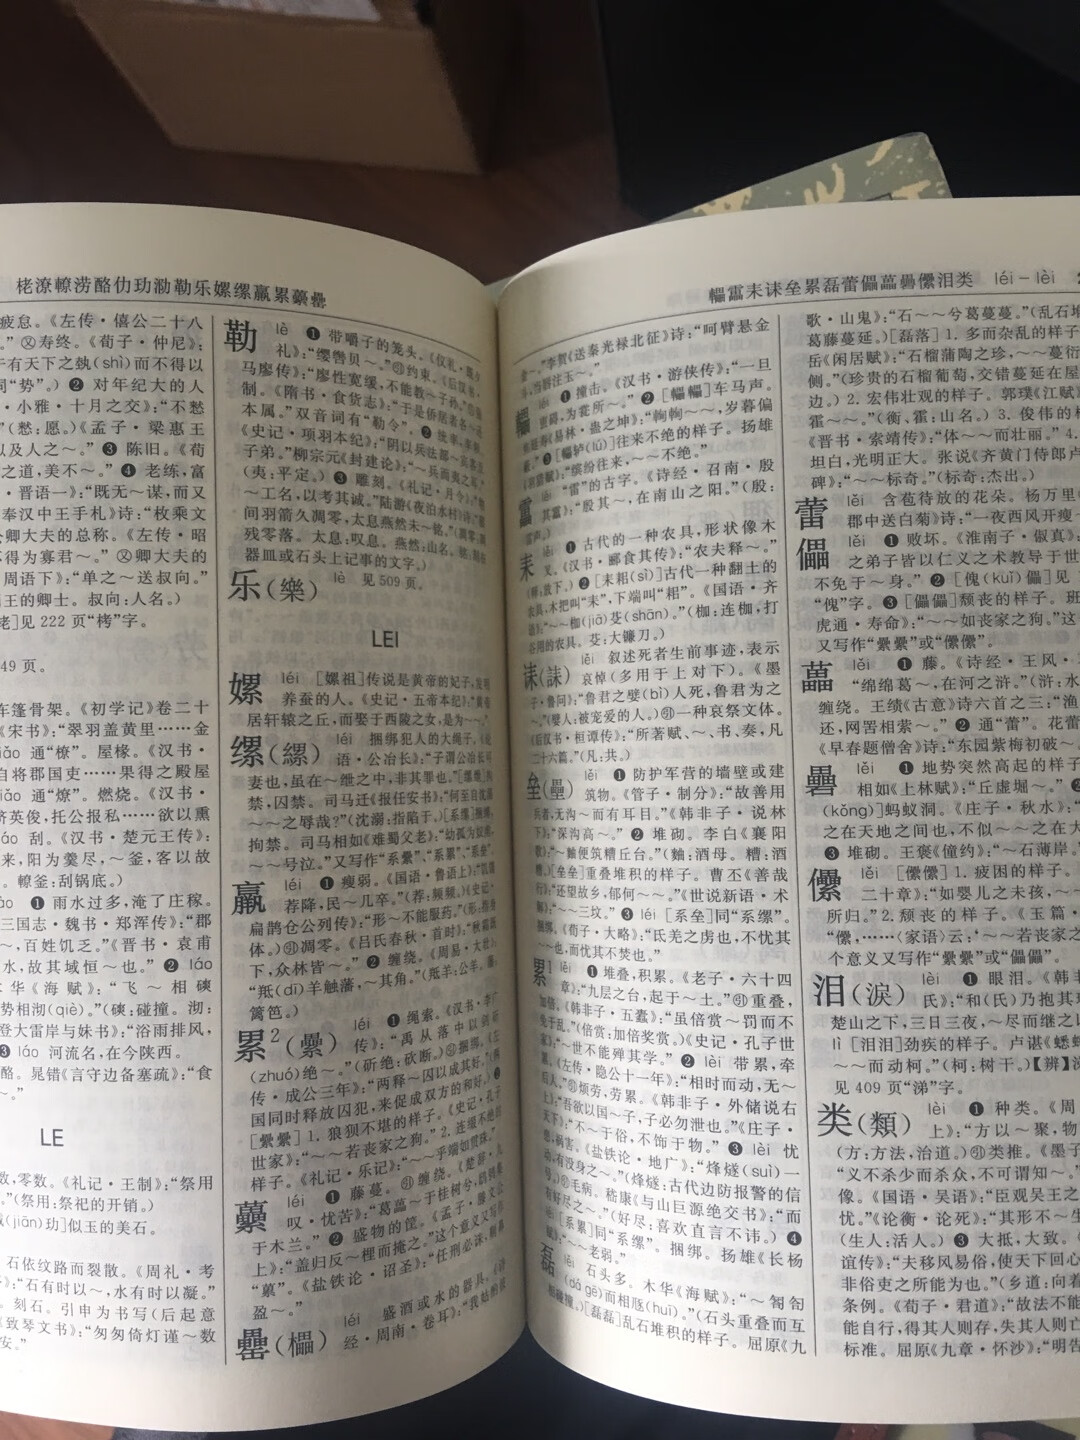 栳潦轑涝酪仂玏泐勒乐嫘缧羸累虆罍
疲怠。《左传·僖公二十八
。”㊁寿终。《荀子·仲尼》:
于有天下之埶(shì)而不得以
同“势”。)❷ 对年纪大的人
·小雅·十月之交》:“不慭
”(慭:愿。)《孟子·梁惠王
以及人之~。”❸ 陈旧。《荀
之道,美不~。”❹ 老练,富
·晋语一》:“既无~谋,而又
奉汉中王手札》诗:“枚乘文
公卿大夫的总称。《左传·昭
不得为寡君~。”㊁卿大夫的
周语下》:“单之~送叔向。”
王的卿士。叔向:人名。)
老]见 222 页“栲”字。
49 页。
车篷骨架。《初学记》卷二十
《宋书》:“翠羽盖黄里……金
iǎo 通“橑”。屋椽。《汉书·
自将郡国吏……果得之殿屋
iǎo 通“燎”。燃烧。《汉书·
齐英俊,托公报私……欲以熏
áo 刮。《汉书·楚元王传》:
来,阳为羹尽,~釜,客以故
。轑釜:刮锅底。)
ào ❶ 雨水过多,淹了庄稼。
三国志·魏书·郑浑传》:“郡
~,百姓饥乏。”《晋书·袁甫
水,故其域恒~也。”❷ láo
木华《海赋》:“飞~相磢
势相沏(qiè)。”(磢:碰撞。沏:
登大雷岸与妹书》:“浴雨排风,
❸ láo 河流名,在今陕西。
酪。晁错《言守边备塞疏》:“食
~。”
LE
数,零数。《礼记·王制》:“祭用
”(祭用:祭祀的开销。)
(jiān)玏]似玉的美石。
石依纹路而裂散。《周礼·考
:“石有时以~,水有时以凝。”
。刻石。引申为书写(后起意
致琴文书》:“匆匆倚灯谨~数
安。”
勒 lè ❶ 带嚼子的笼头。《仪礼·既夕
礼》:“缨辔贝~。”㊁约束。《后汉书·
马廖传》:“廖性宽缓,不能教~子孙。”
制。《隋书·食货志》:“于是侨居者各
本属。”双音词有“勒令”。❷ 统率
《史记·项羽本纪》:“阴以兵法部~宾客及
子弟。”柳宗元《封建论》:“~兵而夷之
(夷:平定。)❸ 雕刻。《礼记·月令》:“物
~工名,以考其诚。”陆游《夜泊水村》诗:“腰
间羽箭久凋零,太息燕然未~铭。”(凋零:
残零落。太息:叹息。燕然:山名。铭:刻在
器皿或石头上记事的文字。)
乐(樂) lè 见 509 页。
LEI
嫘 léi [嫘祖]传说是黄帝的妃子,发明
养蚕的人。《史记·五帝本纪》:“黄帝
居轩辕之丘,而娶于西陵之女,是为~~。”
缧(縲) léi 捆绑犯人的大绳子。《论
语·公冶长》:“子谓公冶长可
妻也,虽在~绁之中,非其罪也。”[缧绁]
禁,囚禁。司马迁《报任安书》:“何至自沈溺
~~之辱哉?”(沈溺:指陷于。)[系缧]捆绑,
拘禁。司马相如《难蜀父老》:“幼孤为奴虏,
~~号泣。”又写作“系纍”、“系累”、“系垒”。
羸 léi ❶ 瘦弱。《国语·鲁语上》:“饥馑
荐降,民~几卒。”(荐:频频。)《史记·
扁鹊仓公列传》:“形~不能服药。”(形:指身
体。)㊁凋零。《吕氏春秋·首时》:“秋霜既
下,众林皆~。”❷ 缠绕。《周易·大壮》:
“羝(dī)羊触藩,~其角。”(羝羊:公羊。藩:
篱笆。)
累²(纍) léi ❶ 绳索。《汉书·李广
传》:“禹从落中以剑斫
(zhuó)绝~。”(斫绝:砍断。)㊁捆绑。《左
传·成公三年》:“两释~囚以成其好。”(两
国同时释放囚犯,来促成双方的和好。)❷
[纍纍]1. 狼狈不堪的样子。《史记·孔子
世家》:“~~若丧家之狗。”2. 连缀不绝的
样子。《礼记·乐记》:“~~乎端如贯珠。”
虆 léi ❶ 藤蔓。㊁缠绕。《楚辞·九
叹·忧苦》:“葛藟~于桂树兮,鸱鸮集
于木兰。”❷ 盛物的筐。《孟子·滕文公
上》:“盖归反~梩而掩之。”这个意义又写作
“蔂”。《盐铁论·诏圣》:“任刑必诛,劓鼻
盈~。”
罍(櫑) léi 盛酒或水的器具。《诗
经·周南·卷耳》:“我姑酌彼
轠靁耒诔垒累磊蕾儡藟礨儽泪类 léi – lèi 2
金~。”李贺《送秦光禄北征》诗:“呵臂悬金
斗,当唇注玉~。”
轠 léi ❶ 撞击。《汉书·游侠传》:“一旦
礙,为瓽所~。”❷ [轠轠]车马声。
焦延寿《易林·蛊之坤》:“轗轗~~,岁暮偏
蔽。”❸ [轠轳(lú)]往来不绝的样子。扬雄
《羽猎赋》:“缤纷往来,~~不绝。”
靁 léi “雷”的古字。《诗经·召南·殷
其靁》:“殷其~,在南山之阳。”(殷:
雷声。)
耒 lěi ❶ 古代的一种农具,形状像木
叉。《汉书·郦食其传》:“农夫释~。”
(释,放下。)❷ [耒耜(sì)]古代一种翻土的
农具,木把叫“耒”,下端叫“耜”。《国语·齐
语》:“~~枷(jiā)芟(shān)。”(枷:连枷,打
谷用的农具。芟:大镰刀。)
诔(誄) lěi 叙述死者生前事迹,表示
哀悼(多用于上对下)。《墨
子·鲁问》:“鲁君之嬖(bì)人死,鲁君为之
~。”(嬖人:被宠爱的人。)㊁一种哀祭文体。
《后汉书·桓谭传》:“所著赋、~、书、奏,凡
二十六篇。”(凡:共。)
垒(壘) lěi ❶ 防护军营的墙壁或建
筑物。《管子·制分》:“故善用
兵者,无沟~而有耳目。”《韩非子·说林
下》:“深沟高~。”❷ 堆砌。李白《襄阳
歌》:“~麯便筑糟丘台。”(麯:酒母。糟:酒
糟。)[垒垒]重叠堆积的样子。曹丕《善哉
行》:“还望故乡,郁何~~。”《世说新语·术
解》:“~~三坟。”❸ léi [系垒]同“系缧”。
捆绑。《荀子·大略》:“氐羌之虏也,不忧其
~~也,而忧其不焚也。”
累¹ lěi ❶ 堆叠,积累。《老子·六十四
章》:“九层之台,起于~土。”㊁重叠,
加倍。《韩非子·五蠹》:“虽倍赏~罚而不
免于乱。”(倍赏:加倍奖赏。)《史记·孔子世
家》:“~世不能殚其学。”❷ lèi 带累,牵
连。《左传·隐公十一年》:“相时而动,无~
后人。”㊁烦劳,劳累。《韩非子·外储说右
上》:“吾欲以国~子,子必勿泄也。”《庄子·
天下》:“不~于俗,不饰于物。”❸ lèi 忧
患,祸害。《盐铁论·地广》:“烽燧(suì)一
动,有没身之~。”(烽燧:古代边防报警的信
号。)㊁毛病。嵇康《与山巨源绝交书》:“而
有好尽之~。”(好尽:喜欢直言不讳。)❹
léi [系累]同“系缧”。捆绑。扬雄《长杨
赋》:“~~老弱。”
磊 lěi 石头多。木华《海赋》:“~匒匌
(dá gé)而相豗(huī)。”(石头重叠而互
相碰撞。)[磊磊]乱石堆积的样子。屈原《九
歌·山鬼》:“石~~兮葛蔓蔓。”(乱石堆
葛藤蔓延。)[磊落]1. 多而杂乱的样子。
岳《闲居赋》:“石榴蒲陶之珍,~~蔓衍
侧。”(珍贵的石榴葡萄,交错蔓延在屋
边。)2. 宏伟壮观的样子。郭璞《江赋》
霍~~。”(衡、霍:山名。)3. 俊伟的样
《晋书·索靖传》:“体~~而壮丽。”4.
坦白,光明正大。张说《齐黄门侍郎卢
碑》:“~~标奇。”(标奇:杰出。)
蕾 lěi 含苞待放的花朵。杨万里
郡中送白菊》诗:“一夜西风开瘦~
儡 lěi ❶ 败坏。《淮南子·俶真》:
之弟子皆以仁义之术教导于世
不免于~身。”❷ [傀(kuǐ)儡]见
“傀”字。❸ [儡儡]颓丧的样子。班
虎通·寿命》:“~~如丧家之狗。”这
又写作“纍纍”或“儽儽”。
藟 lěi ❶ 藤。《诗经·王风·
“绵绵葛~,在河之浒。”(浒:水
缠绕。王绩《古意》诗六首之三:“渔
还,网罟相萦~。”❷ 通“蕾”。花蕾
《早春题僧舍》诗:“东园紫梅初破~
礨 lěi ❶ 地势突然高起的样子
相如《上林赋》:“丘虚堀~。”❷
(kǒng)]蚂蚁洞。《庄子·秋水》:“
之在天地之间也,不似~~之在大
❸ 堆砌。王褒《僮约》:“~石薄岸。”
儽 lěi [儽儽]1. 疲困的样子。
二十章》:“如婴儿之未孩,~~
所归。”2. 颓丧的样子。《玉篇·
“儽,……《家语》云:‘~~若丧家之
个意义又写作“纍纍”或“儡儡”。
泪(淚) lèi ❶ 眼泪。《韩非
氏》:“和(氏)乃抱其璞
楚山之下,三日三夜,~尽而继之以
lì [泪泪]劲疾的样子。卢谌《蟋蟀
~~而动柯。”(柯:树干。)【辨】涕
见 409 页“涕”字。
类(類) lèi ❶ 种类。《周
上》:“方以~聚,物
(方:方法,治道。)㊁类推。《墨子
“义不杀少而杀众,不可谓知~。”
像。《国语·吴语》:“臣观吴王之
忧。”《论衡·论死》:“其形不~生
(生人:活人。)❸ 大抵,大致。《
谊传》:“夫移风易俗,使天下回心
非俗吏之所能为也。”(乡道:向着
条例。《荀子·君道》:“故法不能
能自行,得其人则存,失其人则亡
标准。屈原《九章·怀沙》:“明告